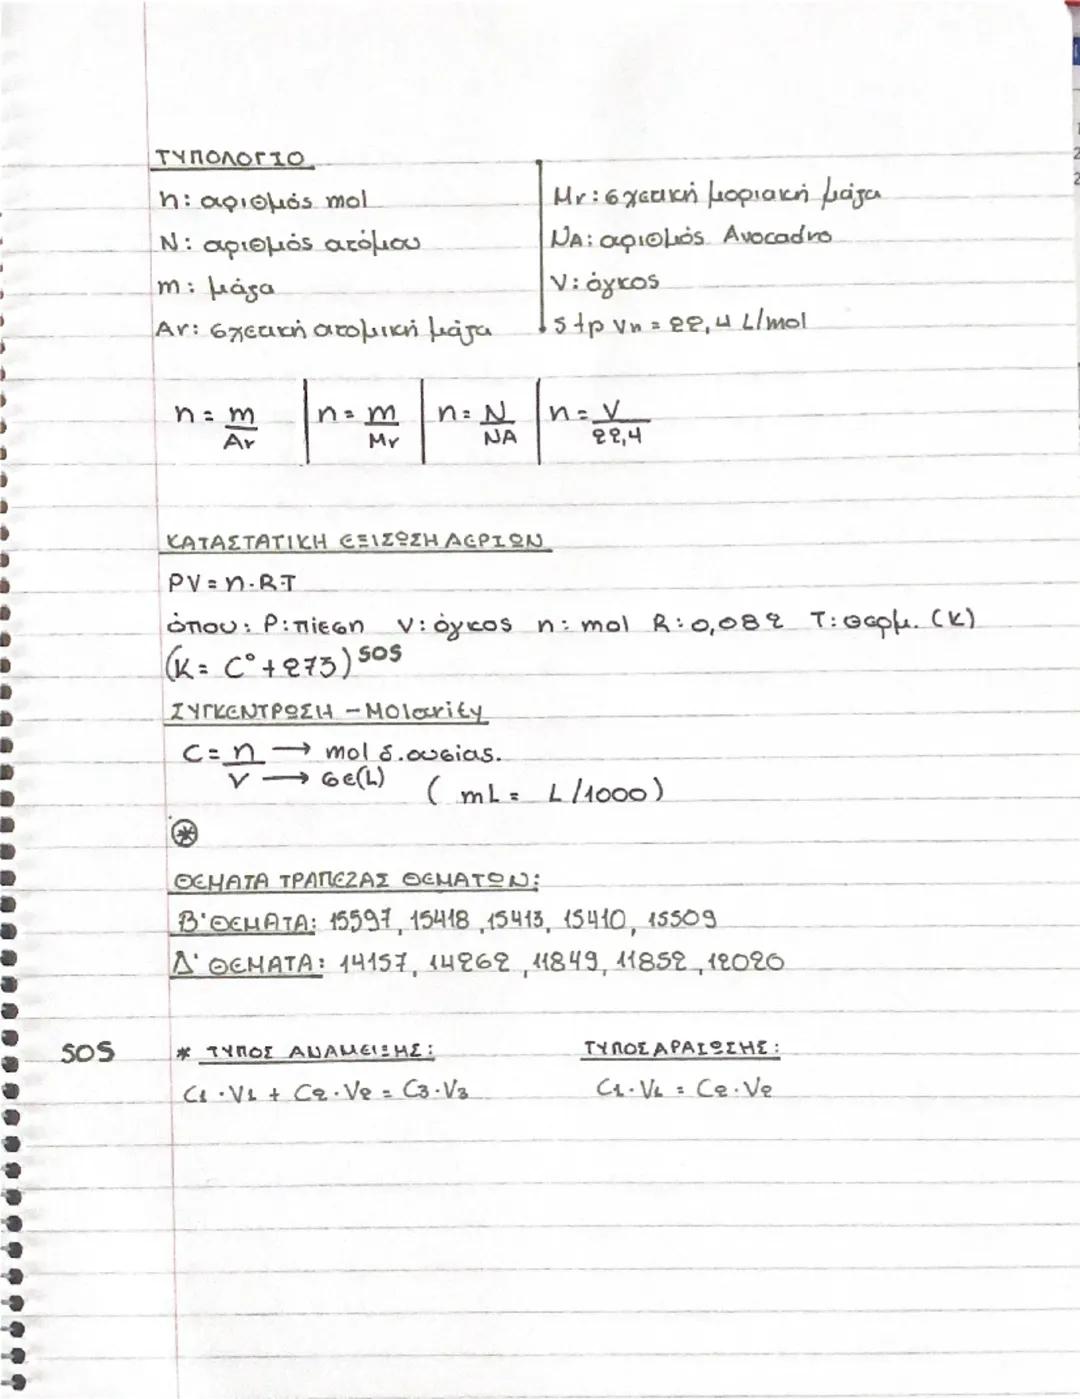 ΤΥΠΟΛΟΓΙΟ
n: αριθμός mol
N: αριθμός ατόμου
m: μάζα
Ar: σχετική ατομική μάζα
Mr: σχετική μοριακή μάζα
NA: αριθμός Avocadro
V: όγκος
stp Vn = 22,4 L/mol
n = m/Ar | n = m/Mr | n = N/NA | n = V/22,4
ΚΑΤΑΣΤΑΤΙΚΗ ΕΞΙΣΩΣΗ ΑΕΡΙΩΝ
PV = n·R·T
όπου: P: πίεση V: όγκος n: mol R: 0,082 T: θερμ. (K)
(K = C° + 273) SOS
ΣΥΓΚΕΝΤΡΩΣΗ - Molarity
C = n → mol δ. ουσίας.
V → σε (L) (mL = L/1000)
⊛
ΘΕΜΑΤΑ ΤΡΑΠΕΖΑΣ ΘΕΜΑΤΩΝ:
Β' ΘΕΜΑΤΑ: 15597, 15418, 15413, 15410, 15509
Δ' ΘΕΜΑΤΑ: 14157, 14262, 11849, 11852, 12020
SOS * ΤΥΠΟΣ ΑΝΑΜΕΙΞΗΣ: ΤΥΠΟΣ ΑΡΑΙΩΣΗΣ:
C1·V1 + C2·V2 = C3·V3 C1·V1 = C2·V2